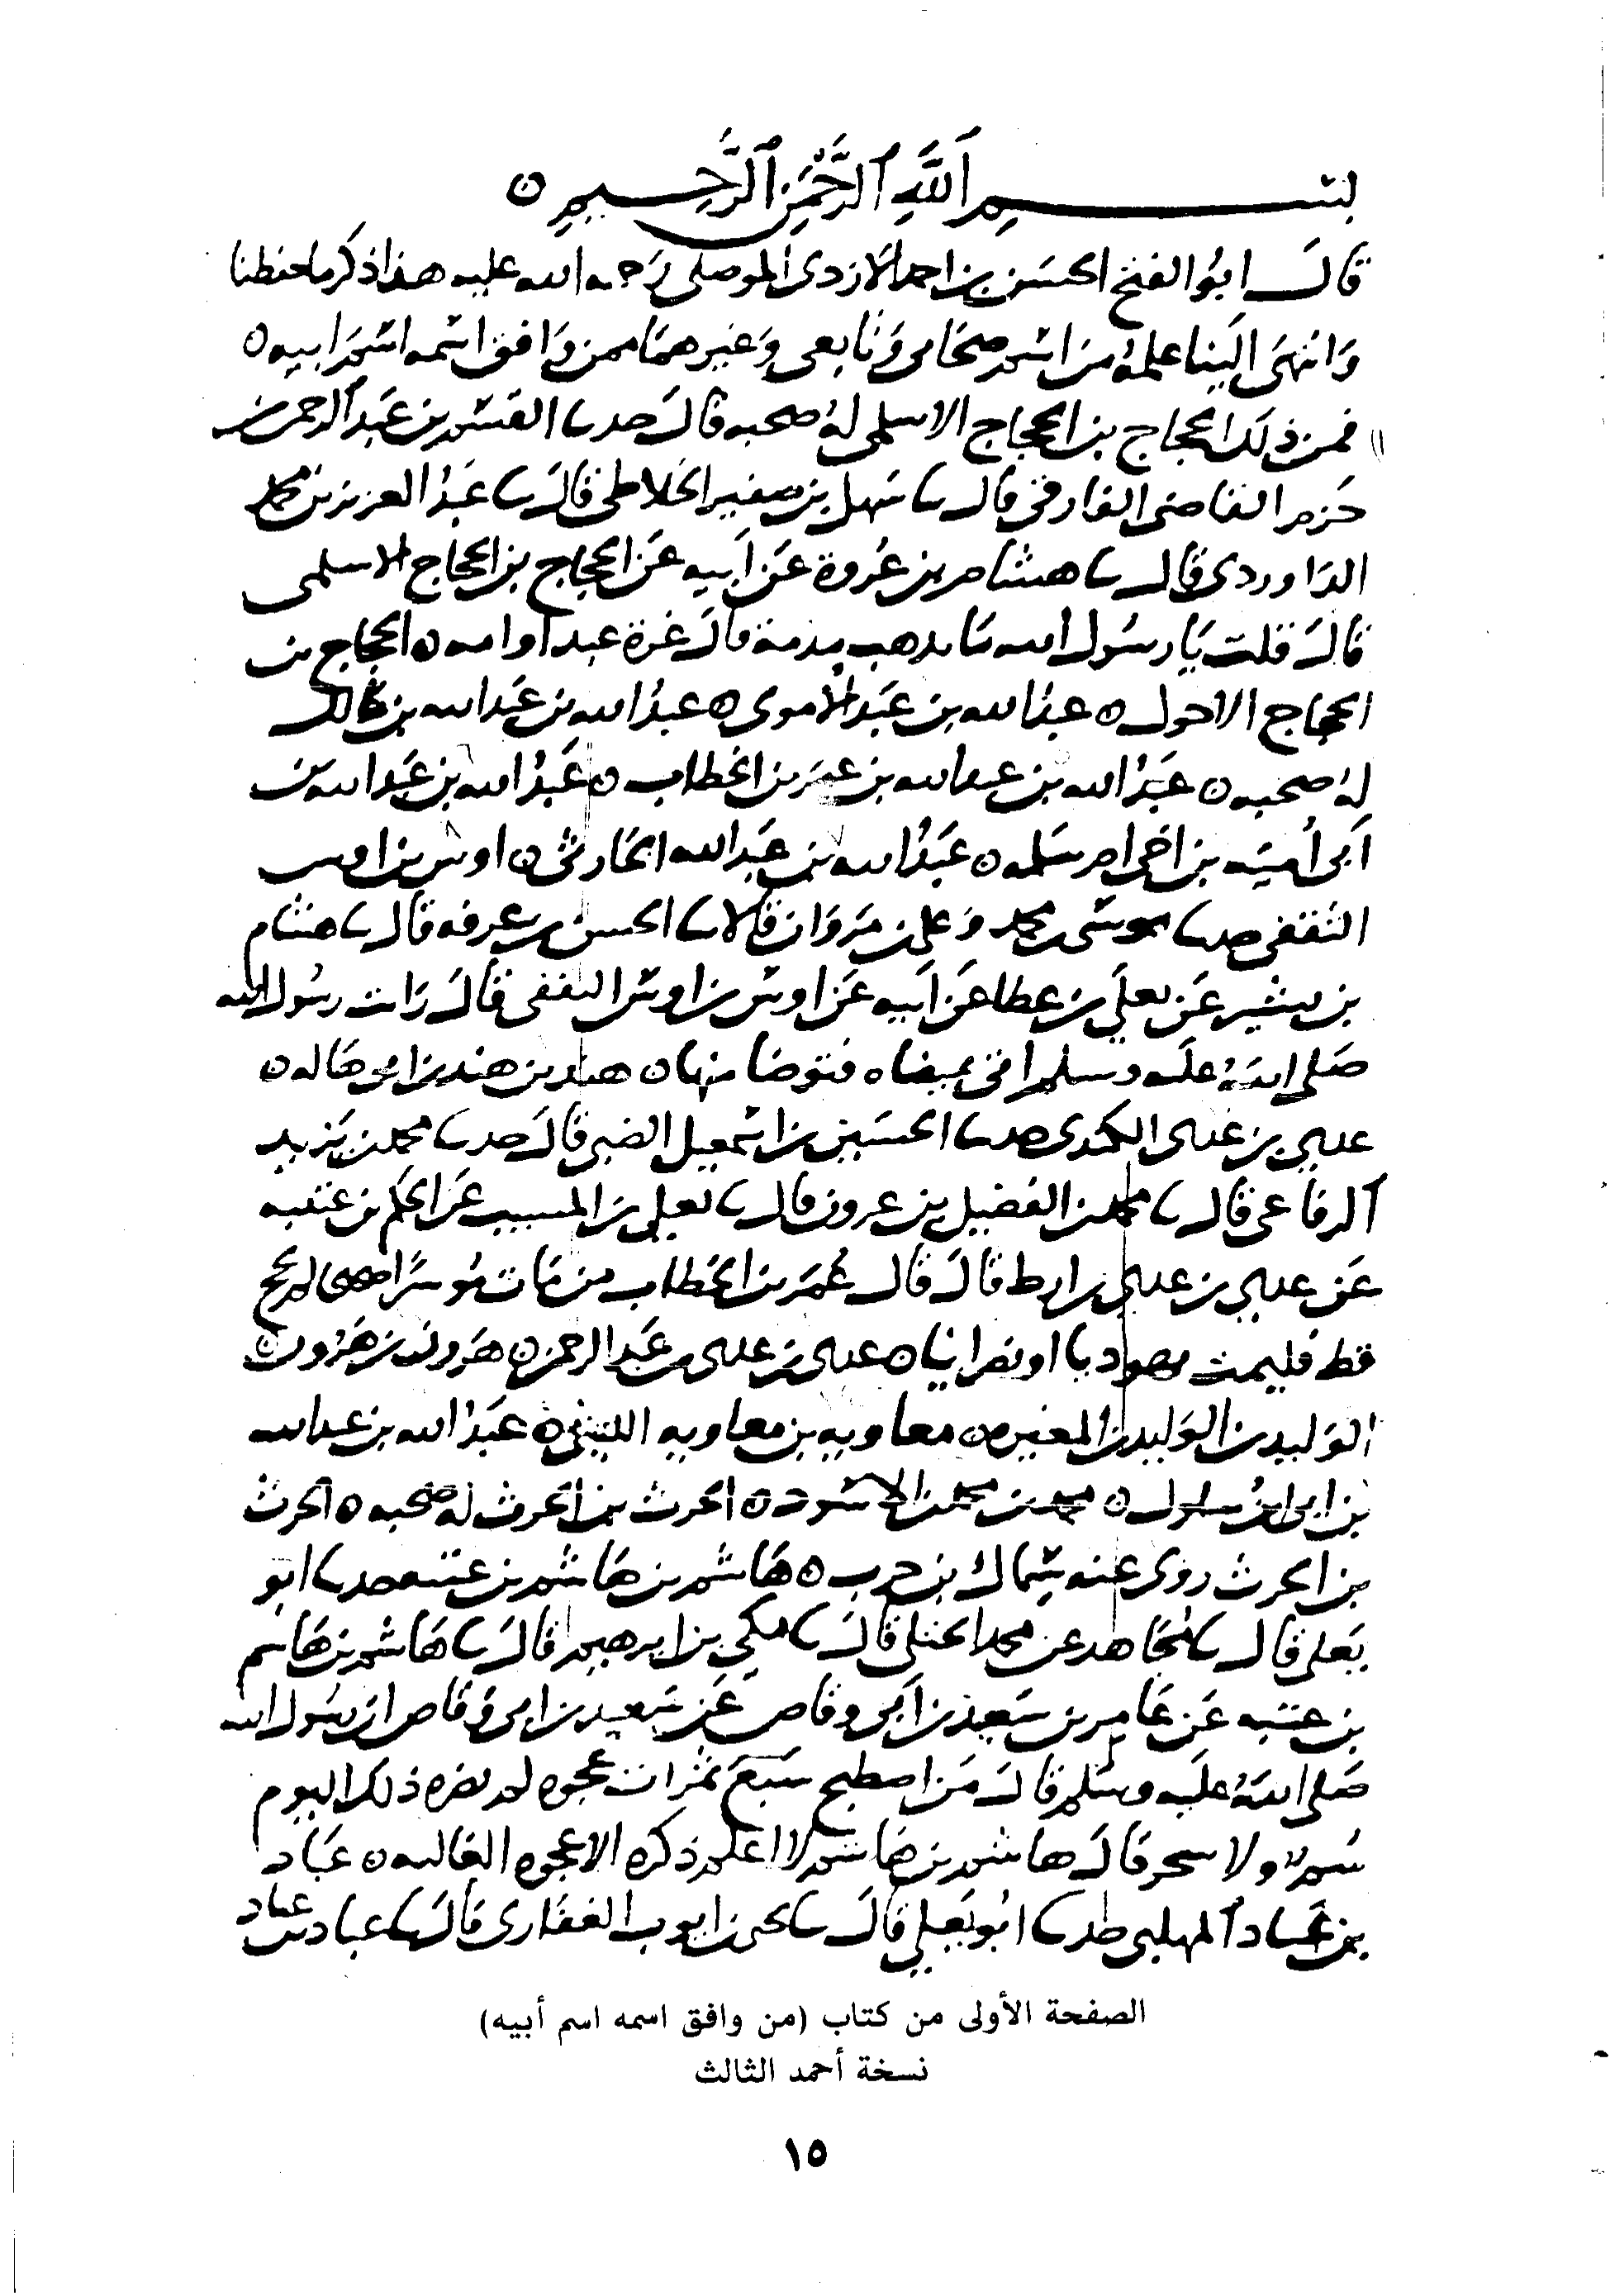 بسم ٱللَّهِ ٱلرَّحْمَنِ ٱلرَّحِيمِ ه
قال ابو الفتح الحسين بن احمد الازدى الموصلى رحمه الله عليه هذا ذكر ما حفظنا
وانتهى الينا علمه من اسم صحابى وتابعى وغيرهما ممن وافق اسمه اسم ابيه ه
فمن ذلك الحجاج بن الحجاج الاسلمى له صحبه قال حدثنا القسم بن عبد الرحمن بن
حزم القاضى الفارقى قال ثنا سهل بن صقير الخلاطى قال ثنا عبد العزيز بن محمد
الدراوردى قال ثنا هشام بن عروة عن ابيه عن الحجاج بن الحجاج الاسلمى
قال قلت يا رسول الله ما يذهب مذمة قال غرة عبد او امه ه الحجاج بن
الحجاج الاحول ه عبد الله بن عبد الاموى ه عبد الله بن عبد الله بن مالك
له صحبه ه عبد الله بن عبد الله بن عمر بن الخطاب ه عبد الله بن عبد الله بن
ابى اميه بن اخى ام سلمه ه عبد الله بن عبد الله الحارثى ه اوس بن اوس
الثقفى حدثنا موسى بن محمد وعلى بن مروان قالا ثنا الحسن بن عرفه قال ثنا هشام
بن بشير عن يعلى بن عطا عن ابيه عن اوس بن اوس الثقفى قال رات رسول الله
صلى الله عليه وسلم اتى بميضاه فتوضا منها ه هند بن هند بن ابى هاله ه
على بن على الكندى حدثنا الحسين بن اسمعيل الضبى قال حدثنا محمد بن يزيد
الرفاعى قال ثنا محمد بن الفضيل بن غزوان قال ثنا يعلى بن المسيب عن الحكم بن عتيبه
عن على بن على بن قال قال عمر بن الخطاب من مات موسرا لم يحج
قط فليمت يهوديا او نصرانيا ه على بن على بن عبد الرحمن ه هرون بن هرون ه
الوليد بن الوليد بن المغيره ه معاويه بن معاويه الليثى ه عبد الله بن عبد الله
بن ابى بن سلول ه محمد بن محمد بن الاسود ه الحرث بن الحرث له صحبه ه الحرث
بن الحرث روى عنه سماك بن حرب ه هاشم بن هاشم بن عتبه حدثنا ابو
يعلى قال ثنا مجاهد عن محمد الختلى قال ثنا مكى بن ابرهيم قال ثنا هاشم بن هاشم
بن عتبه عن عامر بن سعيد بن ابى وقاص عن سعيد بن ابى وقاص ان رسول الله
صلى الله عليه وسلم قال من اصطبح سبع تمرات عجوه لم يضره ذلك اليوم
سم ولا سحر قال هاشم بن هاشم لا اعلم ذكره الا عجوه العاليه ه عباد
بن عباد المهلبى حدثنا ابو يعلى قال ثنا يحيى بن ايوب الغفارى قال ثنا عباد بن عباد
الصفحة الأولى من كتاب (من وافق اسمه اسم أبيه)
نسخة أحمد الثالث
١٥